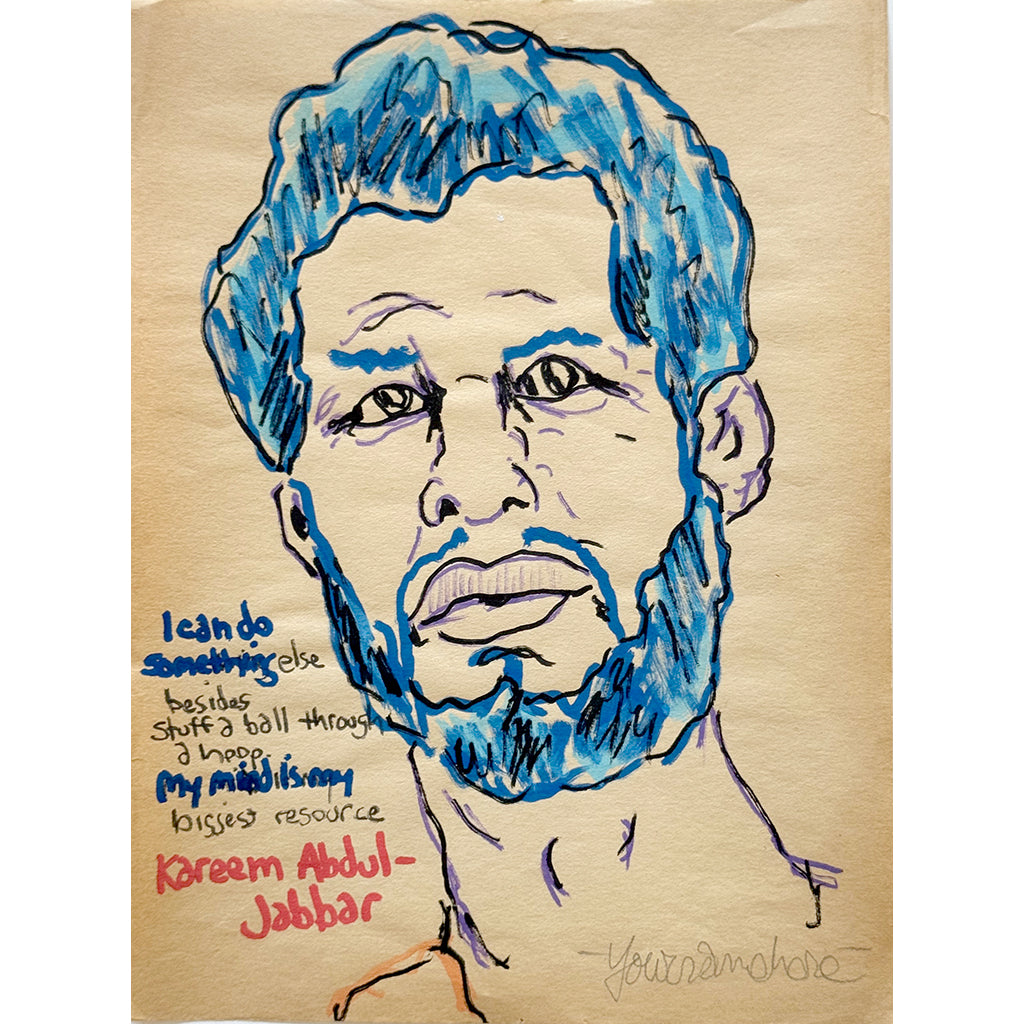 I can do
something else
besides
stuff a ball through
a hoop.
My mind is my
biggest resource
Kareem Abdul-
Jabbar